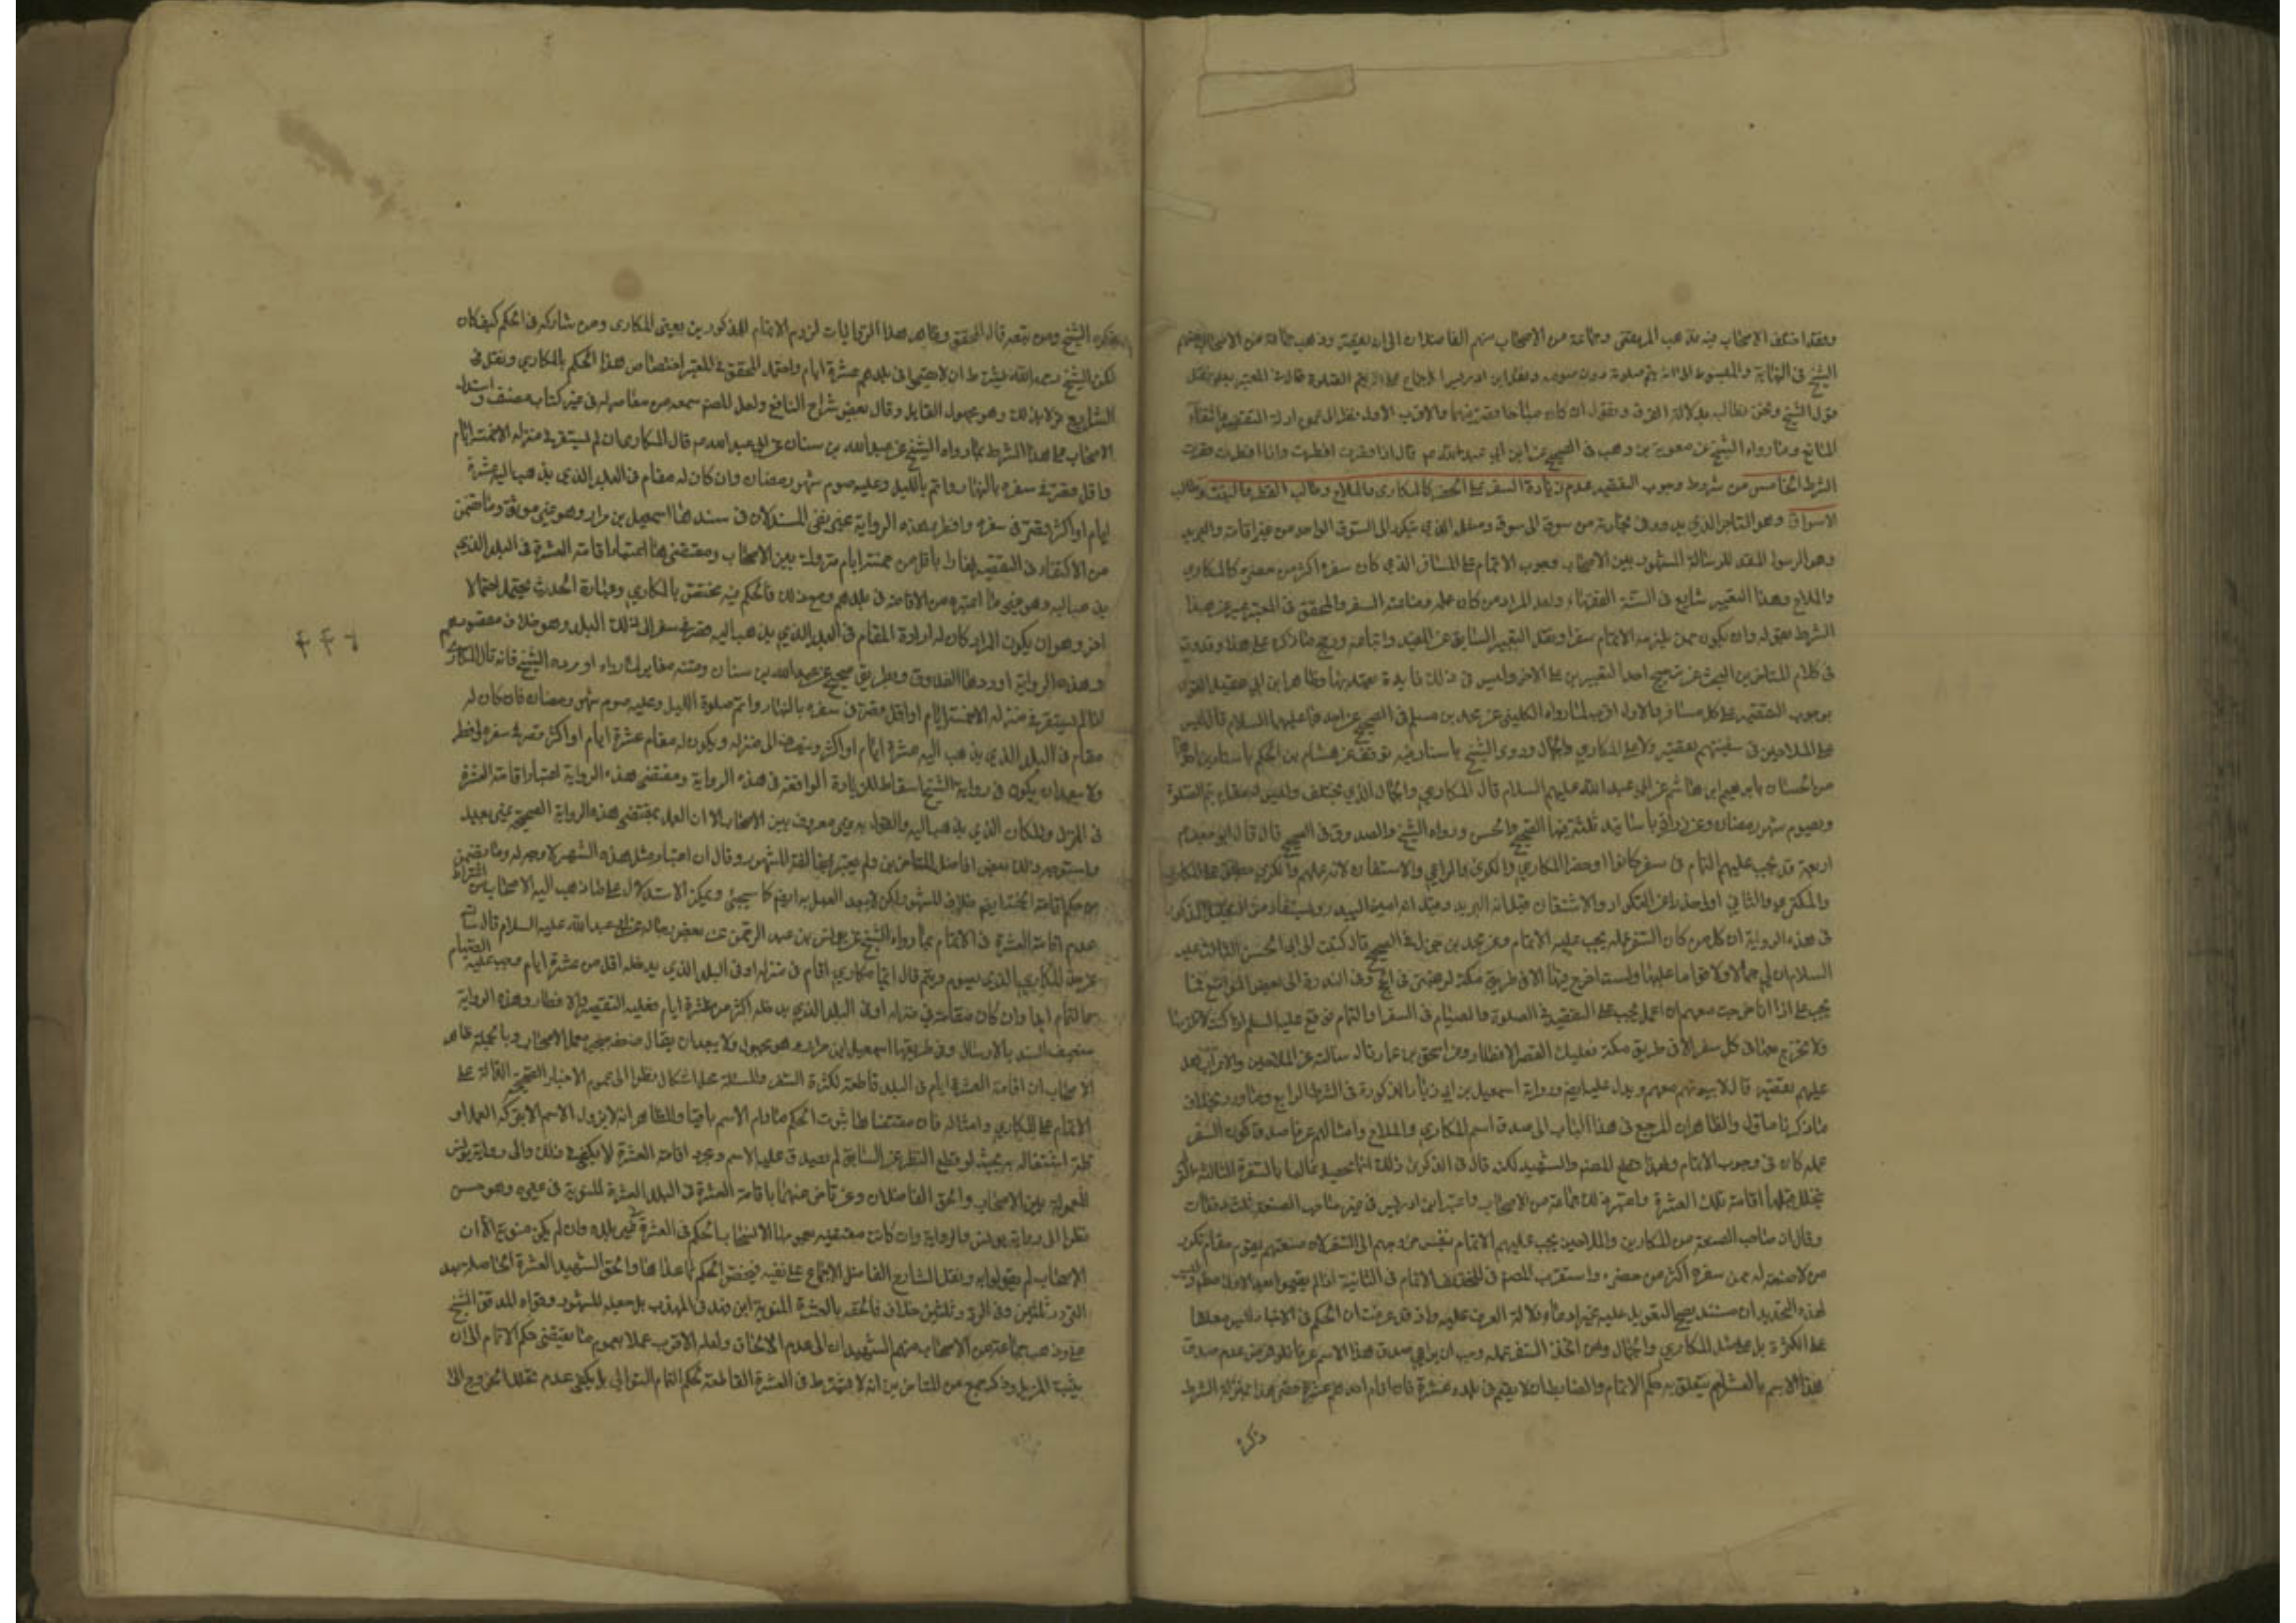 وقد اختلف الاصحاب فيه فذهب المرتضى وجماعة من الاصحاب منهم الفاضلان الى انه يقصر وذهب جماعة من الاصحاب منهم
الشيخ في النهاية والمبسوط الى انه يتم صلوته دون صومه ونقل ابن ادريس الاجماع
قول الشيخ ونحن نطالبه بدلالة الفرق ونقول ان كان مباحا قصر فيهما والاقرب الاول نظرا الى عموم ادلة التقصير وانتفاء
المانع وما رواه الشيخ عن معوية بن وهب في الصحيح عن ابي عبد الله عم قال اذا قصرت افطرت واذا افطرت قصرت
الشرط الخامس من شروط وجوب التقصير عدم زيادة السفر على الحضر كالمكاري والملاح وطالب القطر والنبت وطالب
الاسواق وهو التاجر الذي يدور في تجارته من سوق الى سوق ومثله الذي يتكرر الى السوق الواحد من غير اقامة والبريد
وهو الرسول المعد للرسالة المشهور بين الاصحاب وجوب الاتمام على المسافر الذي كان سفره اكثر من حضره كالمكاري
والملاح وهذا التعبير شايع في السنة الفقهاء ولعل المراد من كان عمله وصناعته السفر والمحقق في المعتبر عبر عن هذا
الشرط بقوله وان يكون ممن يلزمه الاتمام سفرا ونقل التعبير السابق عن المفيد واتباعه ورجح ما ذكره على هذا وقد وقع
في كلام المتاخرين البحث عن ترجيح احد التعبيرين على الاخر وليس في ذلك فايدة يعتد بها وظاهر ابن ابي عقيل القول
بوجوب التقصير على كل مسافر والاول اقرب لما رواه الكليني عن محمد بن مسلم في الصحيح عن احدهما عليهما السلام قال ليس
على الملاحين في سفينتهم تقصير ولا على المكاري والجمال وروى الشيخ باسناد فيه توقف عن هشام بن الحكم باسنادين احدهما
من الحسان بابراهيم ابن هاشم عن ابي عبد الله عليهم السلام قال المكاري والجمال الذي يختلف وليس له مقام يتم الصلوة
ويصوم شهر رمضان وعن زرارة باسانيد ثلثة منها الصحيح والحسن ورواه الشيخ والصدوق في الصحيح قال قال ابو جعفر عم
اربعة قد يجب عليهم التمام في سفر كانوا او حضر المكاري والكري والراعي والاشتقان لانه عملهم والكري يطلق على المكاري
والمكتري والثاني اولى حذرا عن التكرار والاشتقان قيل انه البريد وقيل انه امين البيدر
في هذه الرواية ان كل من كان السفر عمله يجب عليه الاتمام وعن محمد بن جزك في الصحيح قال كتبت الى ابي الحسن الثالث عليه
السلام ان لي جمالا ولي قوام عليها ولست اخرج فيها الا في طريق مكة لرغبتي في الحج وفي الندرة الى بعض المواضع فما
يجب علي اذا انا خرجت معهم ان اعمل يجب على التقصير في الصلوة والصيام في السفر او التمام فوقع عليه السلم اذا كنت لا تلزمها
ولا تخرج معها في كل سفر الا في طريق مكة فعليك القصر والافطار وعن اسحق بن عمار قال سالته عن الملاحين والاعراب هل
عليهم تقصير قال لا بيوتهم معهم ويدل عليه ايضا رواية اسمعيل بن ابي زياد المذكورة في الشرط الرابع
والظاهر ان المرجع في هذا الباب الى صدق اسم المكاري والملاح وامثالهم عرفا صدق كون السفر
عمله كان في وجوب الاتمام وبهذا قطع المصنف والشهيد لكنه قال في الذكرى ذلك انما يحصل غالبا بالسفرة الثالثة التي
لم يتخلل قبلها اقامة تلك العشرة واعتبر ذلك جماعة من الاصحاب واعتبر ابن ادريس في غير صاحب الصنعة ثلث دفعات
وقال ان صاحب الصنعة من المكارين والملاحين يجب عليهم الاتمام بنفس خروجهم الى السفر لان صنعتهم يقوم مقام تكرر
من لا صنعة له ممن سفره اكثر من حضره واستقرب المصنف في المختلف الاتمام في الثانية اذا لم يقيموا بعد الاولى
لهذه التحديدات مستند يصح التعويل عليه غير ادعاء دلالة العرف عليه واذ قد عرفت ان الحكم في الاخبار ليس معلقا
على الكثرة بل على مثل المكاري والجمال ومن اتخذ السفر عمله وجب ان يراعى صدق هذا الاسم عرفا فلو فرض عدم صدق
هذا الاسم بالعشر لم يتعلق به حكم الاتمام والضابط ان لا يقيم في بلده عشرة فان اقام احدهم عشرة قصر هذا بمنزلة الشرط
ذكره
ذكره الشيخ ومن تبعه قال المحقق وظاهر هذه الروايات لزوم الاتمام للمذكورين يعني المكاري ومن شاركه في الحكم كيف كان
لكن الشيخ رحمه الله يشترط ان لا يقيموا في بلدهم عشرة ايام واحتمل المحقق في المعتبر اختصاص هذا الحكم بالمكاري ونقل في
الشرايع قولا بذلك وهو مجهول القايل وقال بعض شراح النافع ولعل المصنف سمعه من معاصر له في غير كتاب مصنف واستدل
الاصحاب على هذا الشرط بما رواه الشيخ عن عبد الله بن سنان عن ابي عبد الله عم قال المكاري ان لم يستقر في منزله الا خمسة ايام
واقل قصر في سفره بالنهار واتم بالليل وعليه صوم شهر رمضان وان كان له مقام في البلد الذي يذهب اليه عشرة
ايام او اكثر قصر في سفره وافطر
من الاكتفاء في التقصير نهارا باقل من خمسة ايام متروك بين الاصحاب ومقتضى هذا اعتبار اقامة العشرة في البلد الذي
يذهب اليه وهو غير ما اعتبره من الاقامة في بلدهم ومع ذلك فالحكم فيه مختص بالمكاري وعبارة الحديث يحتمل احتمالا
اخر وهو ان يكون المراد كان له ارادة المقام في البلد الذي يذهب اليه قصر في سفره الى ذلك البلد وهو خلاف مقصودهم
وهذه الرواية اوردها الصدوق بطريق صحيح عن عبد الله بن سنان ومتنه مغاير لما رواه اورده الشيخ فانه قال المكاري
اذا لم يستقر في منزله الا خمسة ايام او اقل قصر في سفره بالنهار واتم صلوة الليل وعليه صوم شهر رمضان فان كان له
مقام في البلد الذي يذهب اليه عشرة ايام او اكثر وينصرف الى منزله ويكون له مقام عشرة ايام او اكثر قصر في سفره وافطر
ولا يبعد ان يكون في رواية الشيخ اسقاط للزيادة الواقعة في هذه الرواية ومقتضى هذه الرواية اعتبار اقامة العشرة
في المنزل والمكان الذي يذهب اليه والقول به غير معروف بين الاصحاب الا ان العمل بمقتضى هذه الرواية الصحيحة غير بعيد
واستوجه ذلك بعض افاضل المتاخرين ولم يعتبر مخالفة المشهور وقال ان اعتبار مثل هذه الشهرة لا وجه له وما يتضمن
من حكم اقامة الخمسة ايضا خلاف المشهور ولكن لا يبعد العمل به ايضا كما سيجئ ويمكن الاستدلال على ما ذهب اليه الاصحاب من اشتراط
عدم اقامة العشرة في الاتمام بما رواه الشيخ عن يونس بن عبد الرحمن عن بعض رجاله عن ابي عبد الله عليه السلام قال سالته
عن حد المكاري الذي يصوم ويتم قال ايما مكاري اقام في منزله او في البلد الذي يدخله اقل من عشرة ايام وجب عليه الصيام
والتمام ابدا وان كان مقامه في منزله او في البلد الذي يدخله اكثر من عشرة ايام فعليه التقصير والافطار وهذه الرواية
ضعيف السند بالارسال وفي طريقها اسمعيل ابن مرار وهو مجهول ولا يبعد ان يقال ضعفه منجبر بعمل الاصحاب وبالجملة ظاهر
الاصحاب ان اقامة العشرة ايام في البلد قاطعة لكثرة السفر والمسئلة محل اشكال نظرا الى عموم الاخبار الصحيحة الدالة على
الاتمام على المكاري وامثاله فان مقتضاها ثبوت الحكم ما دام الاسم باقيا والظاهر انه لا يزول الاسم الا بتركه العمل او
قلة اشتغاله به بحيث لو قطع النظر عن السابق لم يصدق عليه الاسم ومجرد اقامة العشرة لا يكفي في ذلك والى رواية يونس
المعمولة بين الاصحاب والحق الفاضلان وغيرهما باقامة العشرة في البلد العشرة المنوية في غيره وهو حسن
نظرا الى رواية يونس والرواية وان كانت مقتضية بعمومها لانسحاب الحكم في العشرة في غير بلده وان لم يكن منوية الا ان
الاصحاب لم يقولوا به ونقل الشارح الفاضل الاجماع على نفيه فيختص الحكم بما عداها والحق الشهيد العشرة الحاصلة بعد
التردد ثلثين وفي
وذهب جماعة من الاصحاب منهم الشهيدان الى عدم الالحاق ولعله الاقرب عملا بعموم ما يقتضي حكم الاتمام الى ان
يثبت المزيل وذكر جمع من المتاخرين انه لا يشترط في العشرة القاطعة لحكم التمام التوالي بل يكفي عدم تخلل الخروج الى